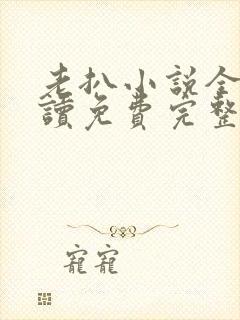 老扒小説全
讀免費完整
寵寵